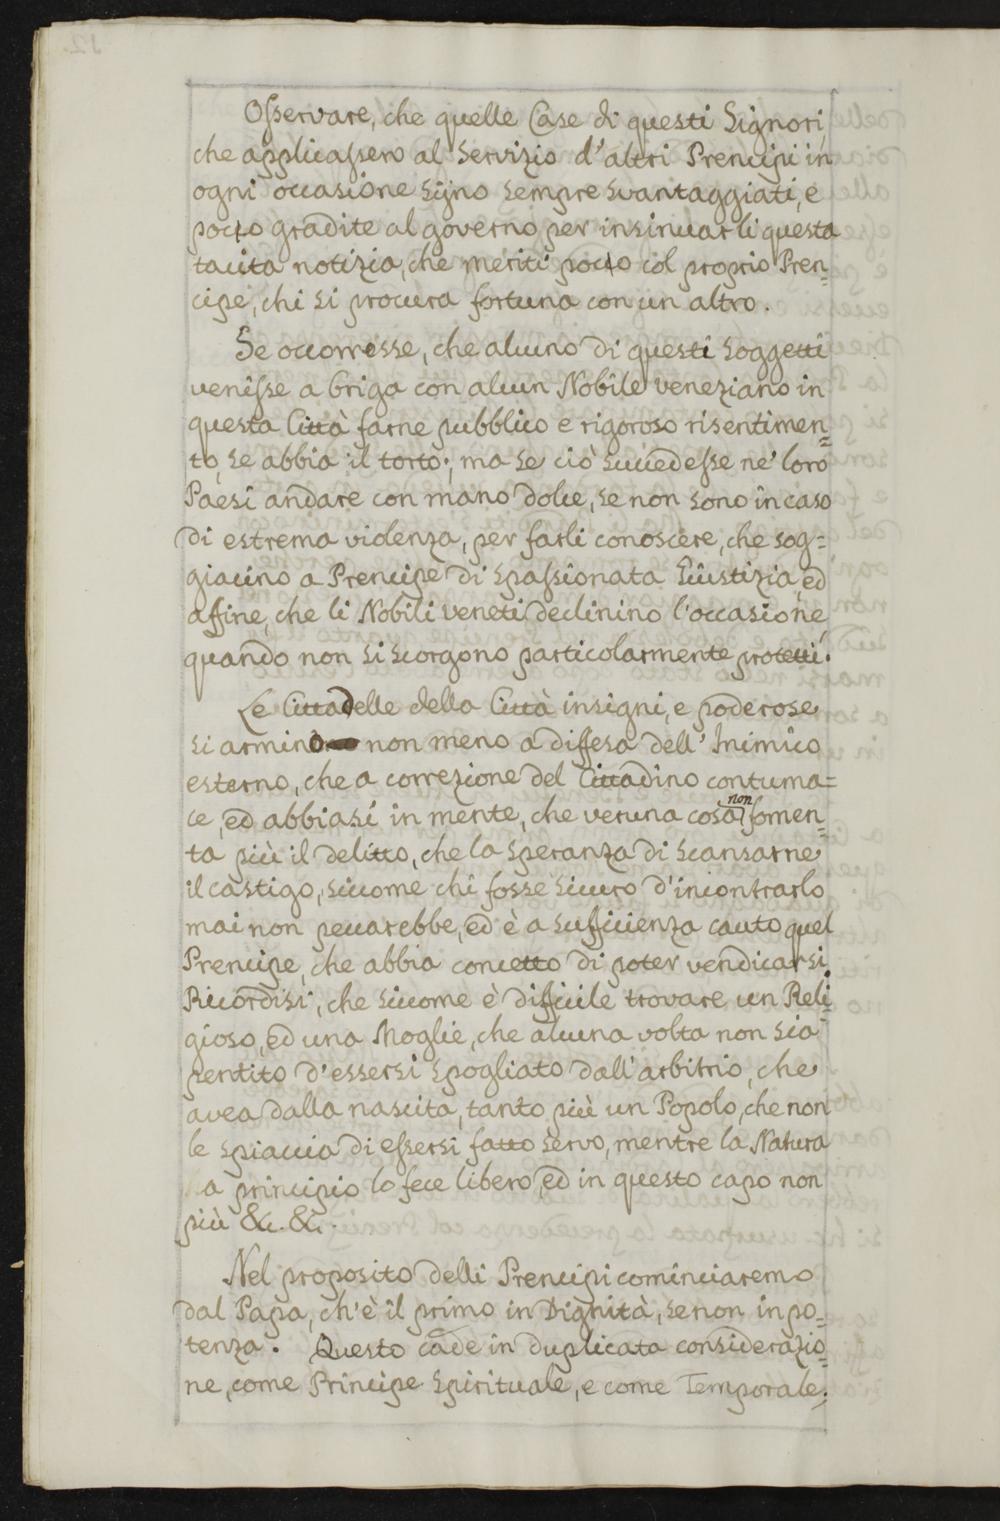 Osservare, che quelle Case di questi Signori,
che applicassero al Servizio d'altri Prencipi in
ogni occasione sijno sempre svantaggiati, e
pocho gradite al governo per insinuarli questa
tacita notizia, che meriti pocho col proprio Pren=
cipe, chi si procura fortuna con un altro.
Se occorresse, che alcuno di questi soggetti
venisse a briga con alcun Nobile veneziano in
questa Città farne pubblico e rigoroso risentimen=
to, se abbia il torto; ma se ciò succedesse ne' loro
Paesi andare con mano dolce, se non sono in caso
di estrema violenza, per farli conoscere, che sog=
giacino a Prencipe di spassionata Giustizia, ed
affine, che li Nobili veneti declinino l'occasione,
quando non si scorgono particolarmente protetti.
Le Cittadelle della Città insigni, e poderose
si armino non meno a difesa dell'Inimico
esterno, che a correzione del Cittadino contuma=
ce, ed abbiasi in mente, che veruna cosa non fomen=
ta più il delitto, che la speranza di scansarne
il castigo, siccome chi fosse sicuro d'incontrarlo
mai non peccarebbe, ed è a sufficienza cauto quel
Prencipe, che abbia concetto di poter vendicarsi.
Ricordisi, che siccome è difficile trovare un Reli=
gioso, ed una Moglie, che alcuna volta non sia
pentito d'essersi spogliato dall'arbitrio, che
avea dalla nascita, tanto più un Popolo, che non
le spiaccia di essersi fatto servo, mentre la Natura
a principio lo fece libero, ed in questo capo non
più &c. &c.
Nel proposito delli Prencipi cominciaremo
dal Papa, ch'è il primo in Dignità, se non in po=
tenza. Questo cade in duplicata considerazio=
ne, come Principe Spirituale, e come Temporale;